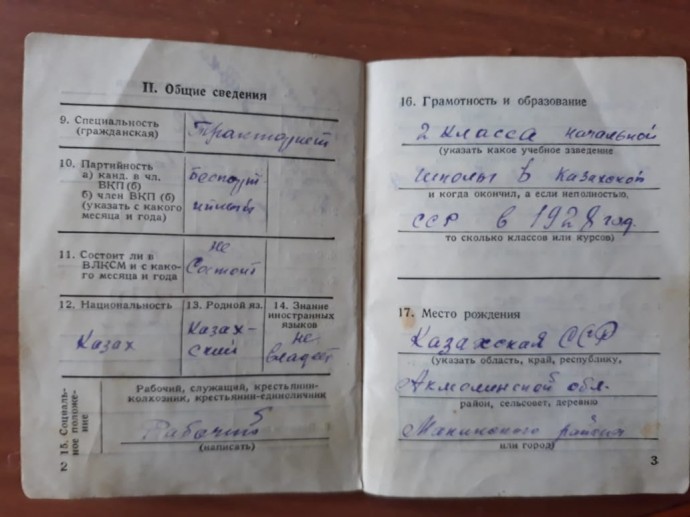 II. Общие сведения
9. Специальность
(гражданская)
Тракторист
10. Партийность
а) канд. в чл.
ВКП (б)
б) член ВКП (б)
(указать с какого
месяца и года)
Беспарт
ийный
11. Состоит ли в
ВЛКСМ и с како-
го месяца и года
не
состоит
12. Национальность
Казах
13. Родной яз.
Казах-
ский
14. Знание
иностранных
языков
не
владеет
15. Социаль-
ное положе-
ние
Рабочий, служащий, крестьянин-
колхозник, крестьянин-единоличник
Рабочий
(написать)
2
16. Грамотность и образование
2 класса начальной
(указать какое учебное заведение
школы в Казахской
и когда окончил, а если неполностью,
ССР в 1928 год.
то сколько классов или курсов)
17. Место рождения
Казахская ССР
(указать область, край, республику,
Акмолинской обл-
район, сельсовет, деревню
района
или город)
3